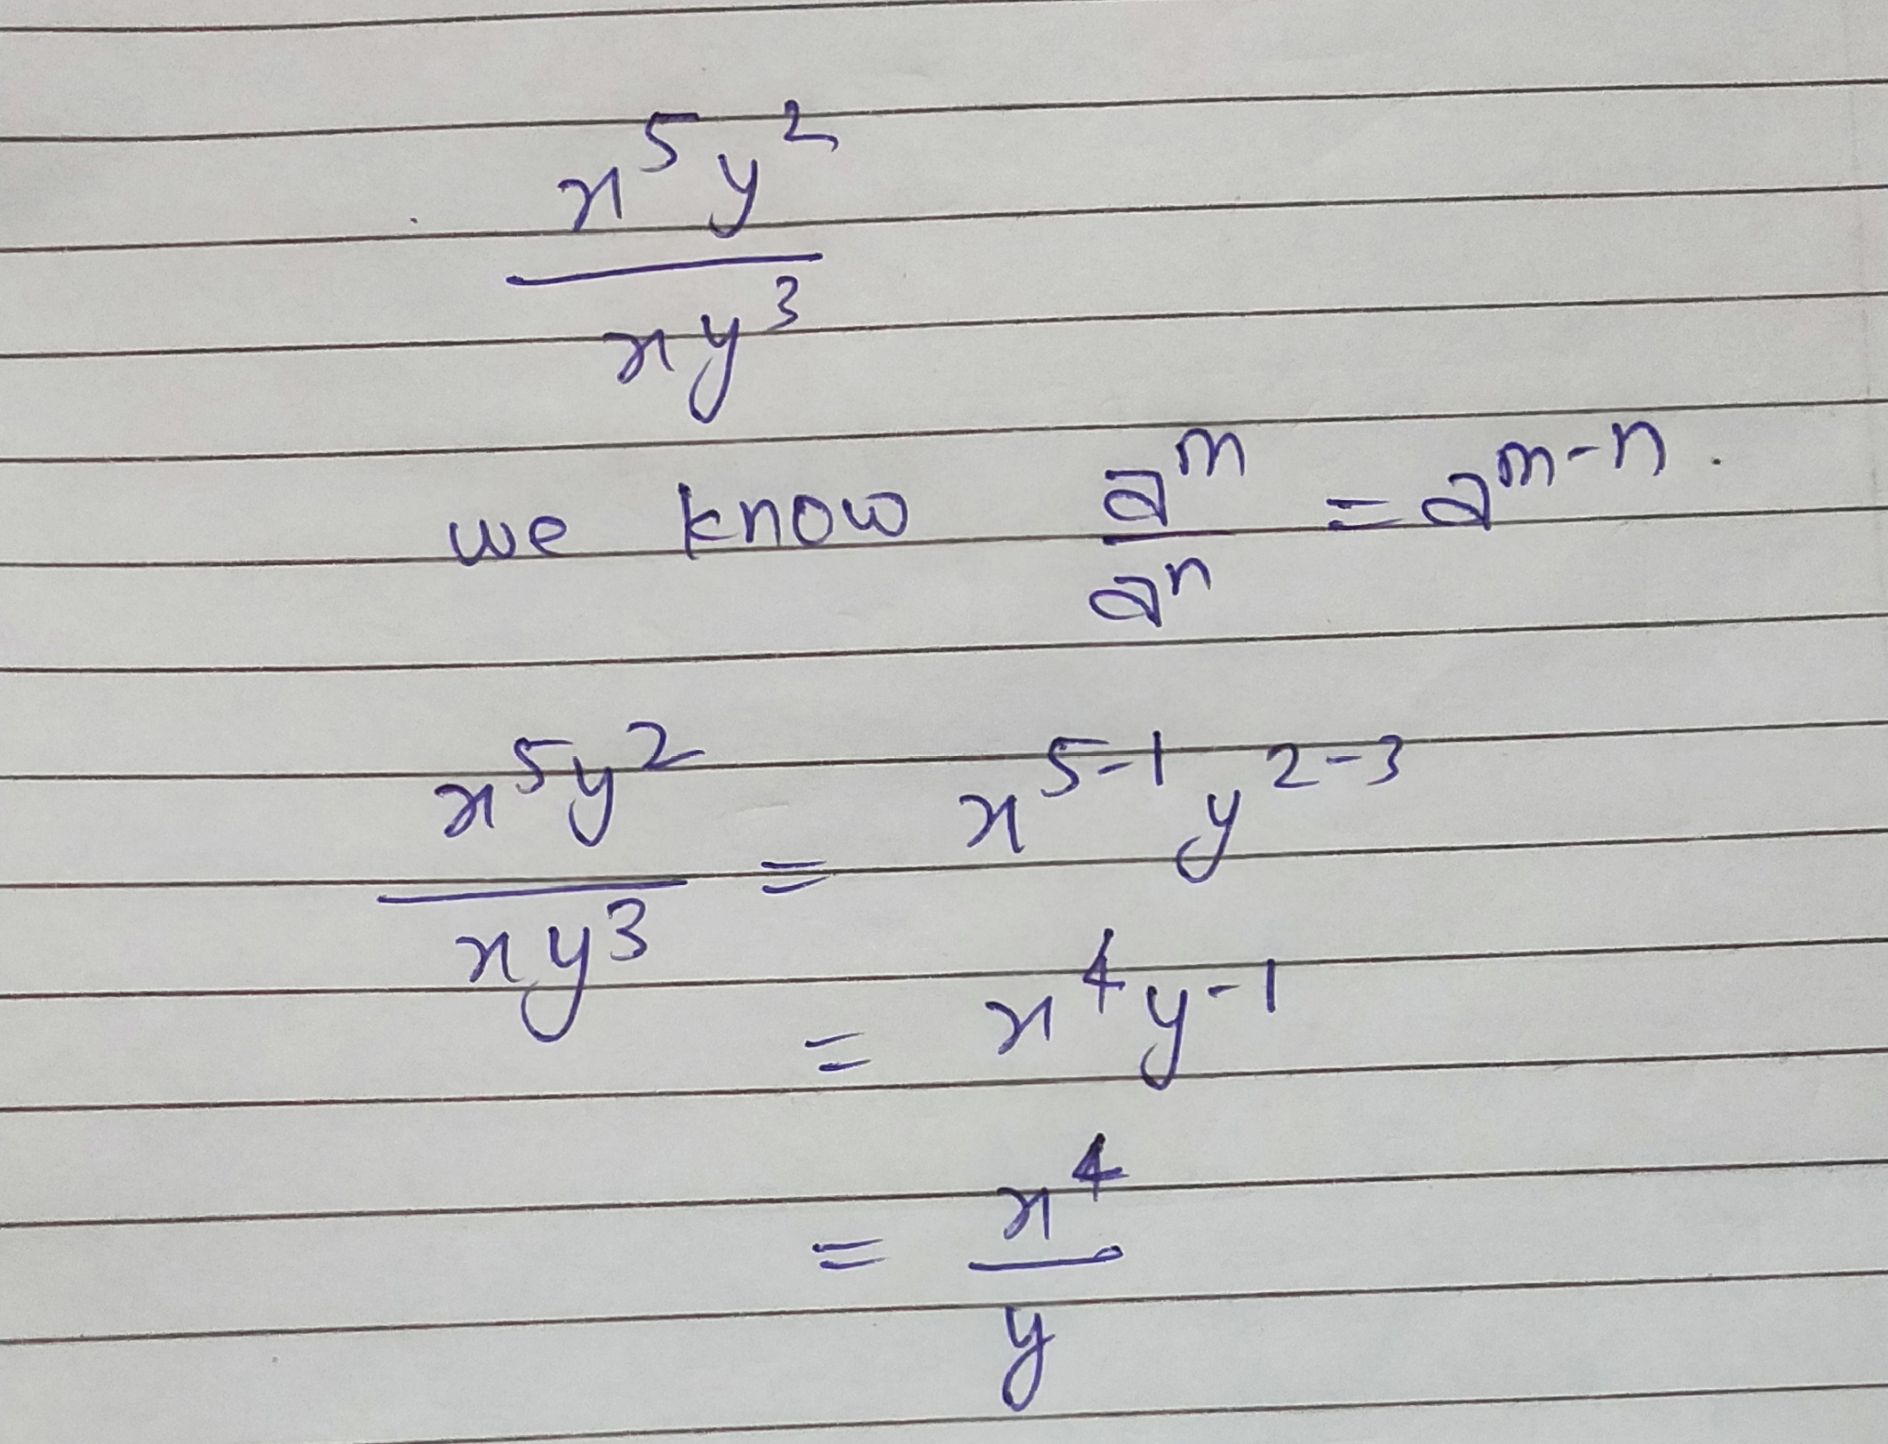 x⁵y²
xy³
we know aᵐ/aⁿ = aᵐ⁻ⁿ.
x⁵y²/xy³ = x⁵⁻¹y²⁻³
= x⁴y⁻¹
= x⁴/y